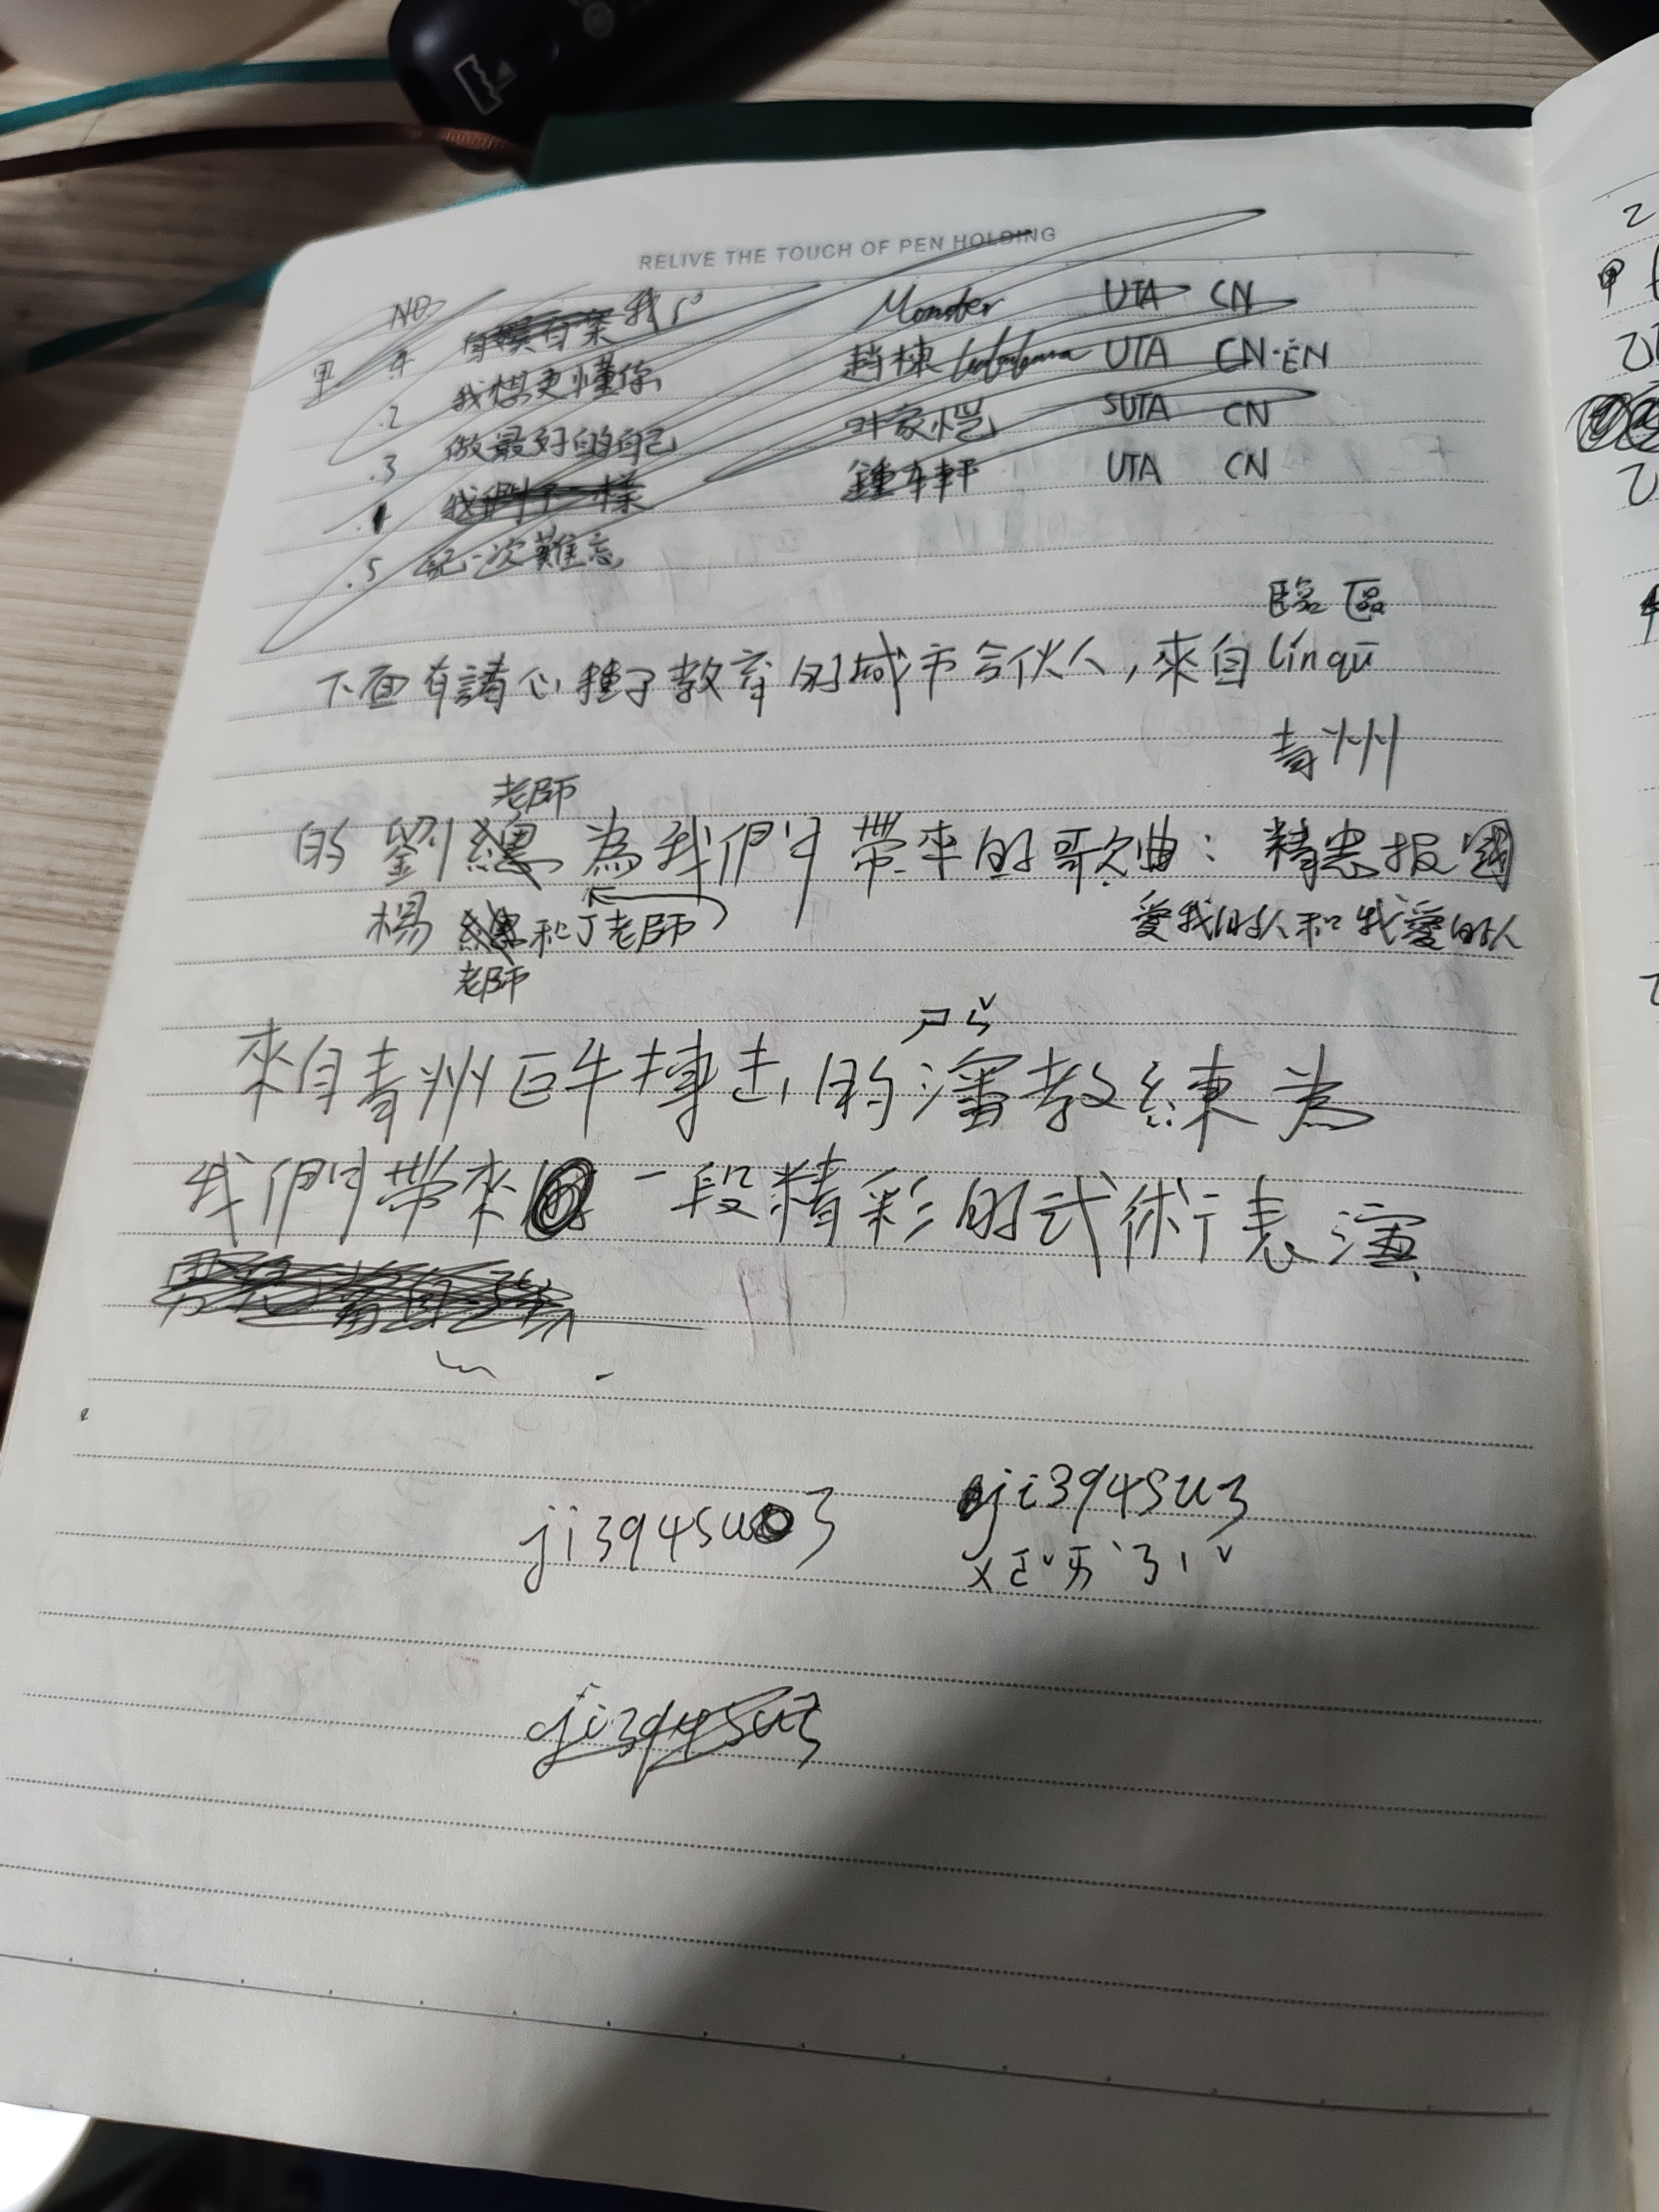 RELIVE THE TOUCH OF PEN HOLDING
NO
甲 1 我 Monster UTA CN
.2 我想更懂你 趙棟 UTA CN·EN
.3 做最好的自己 叶家恺 SUTA CN
我們不一樣 UTA CN
.5 記一次難忘
臨區
下面有請心種子教育的城市合伙人,來自línqū
青州
老師
的劉總為我們帶來的歌曲: 精忠报國
楊總和丁老師 愛我的人和我愛的人
老師
ㄕㄣˇ
來自青州巨牛搏击的瀋教練為
我們帶來一段精彩的武術表演
ji394su3 ji394su3
ㄨㄛˇㄞˋㄋㄧˇ
ji394su3